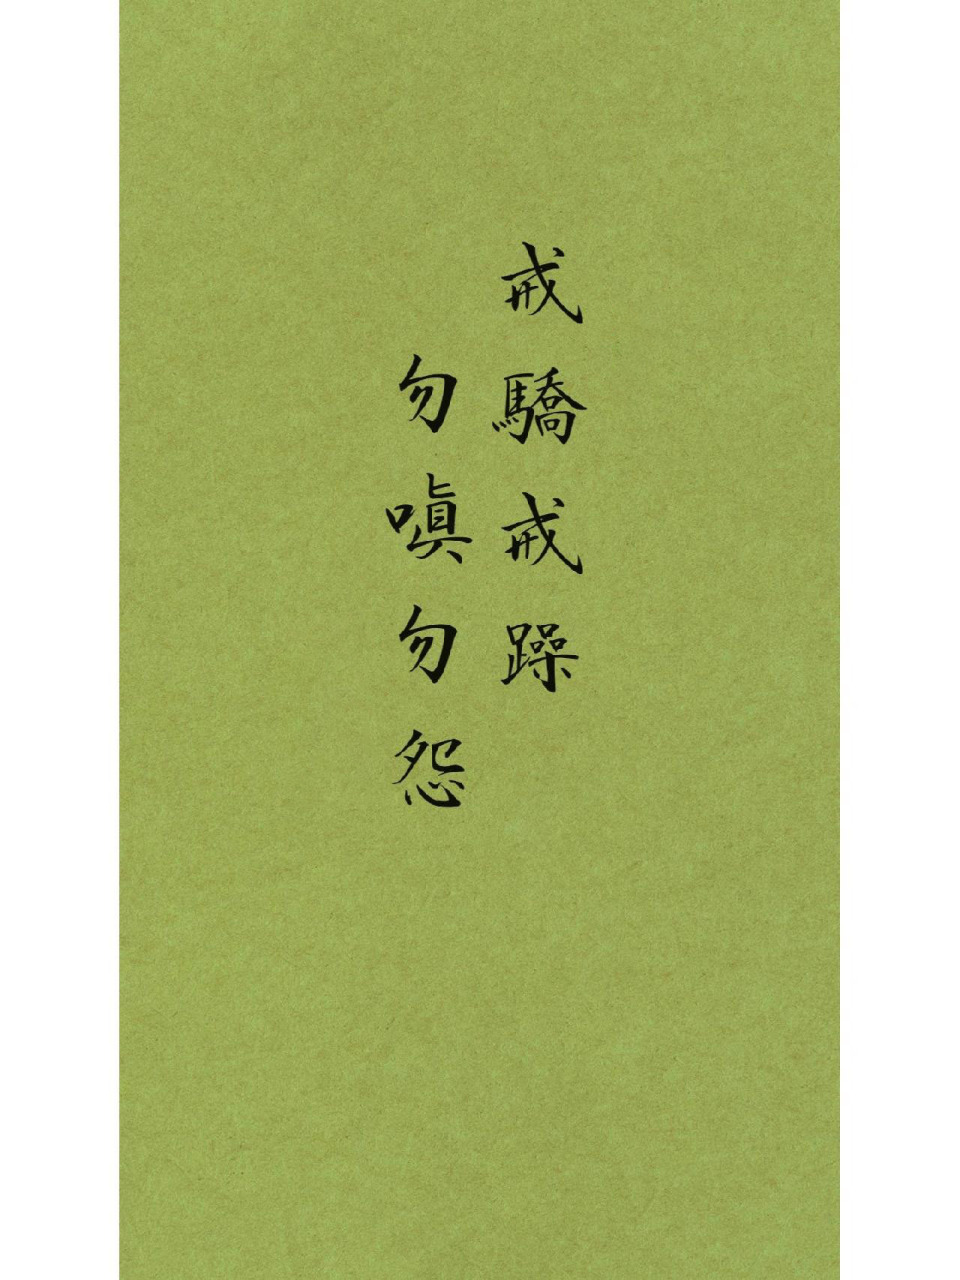 戒驕戒躁
勿嗔勿怨